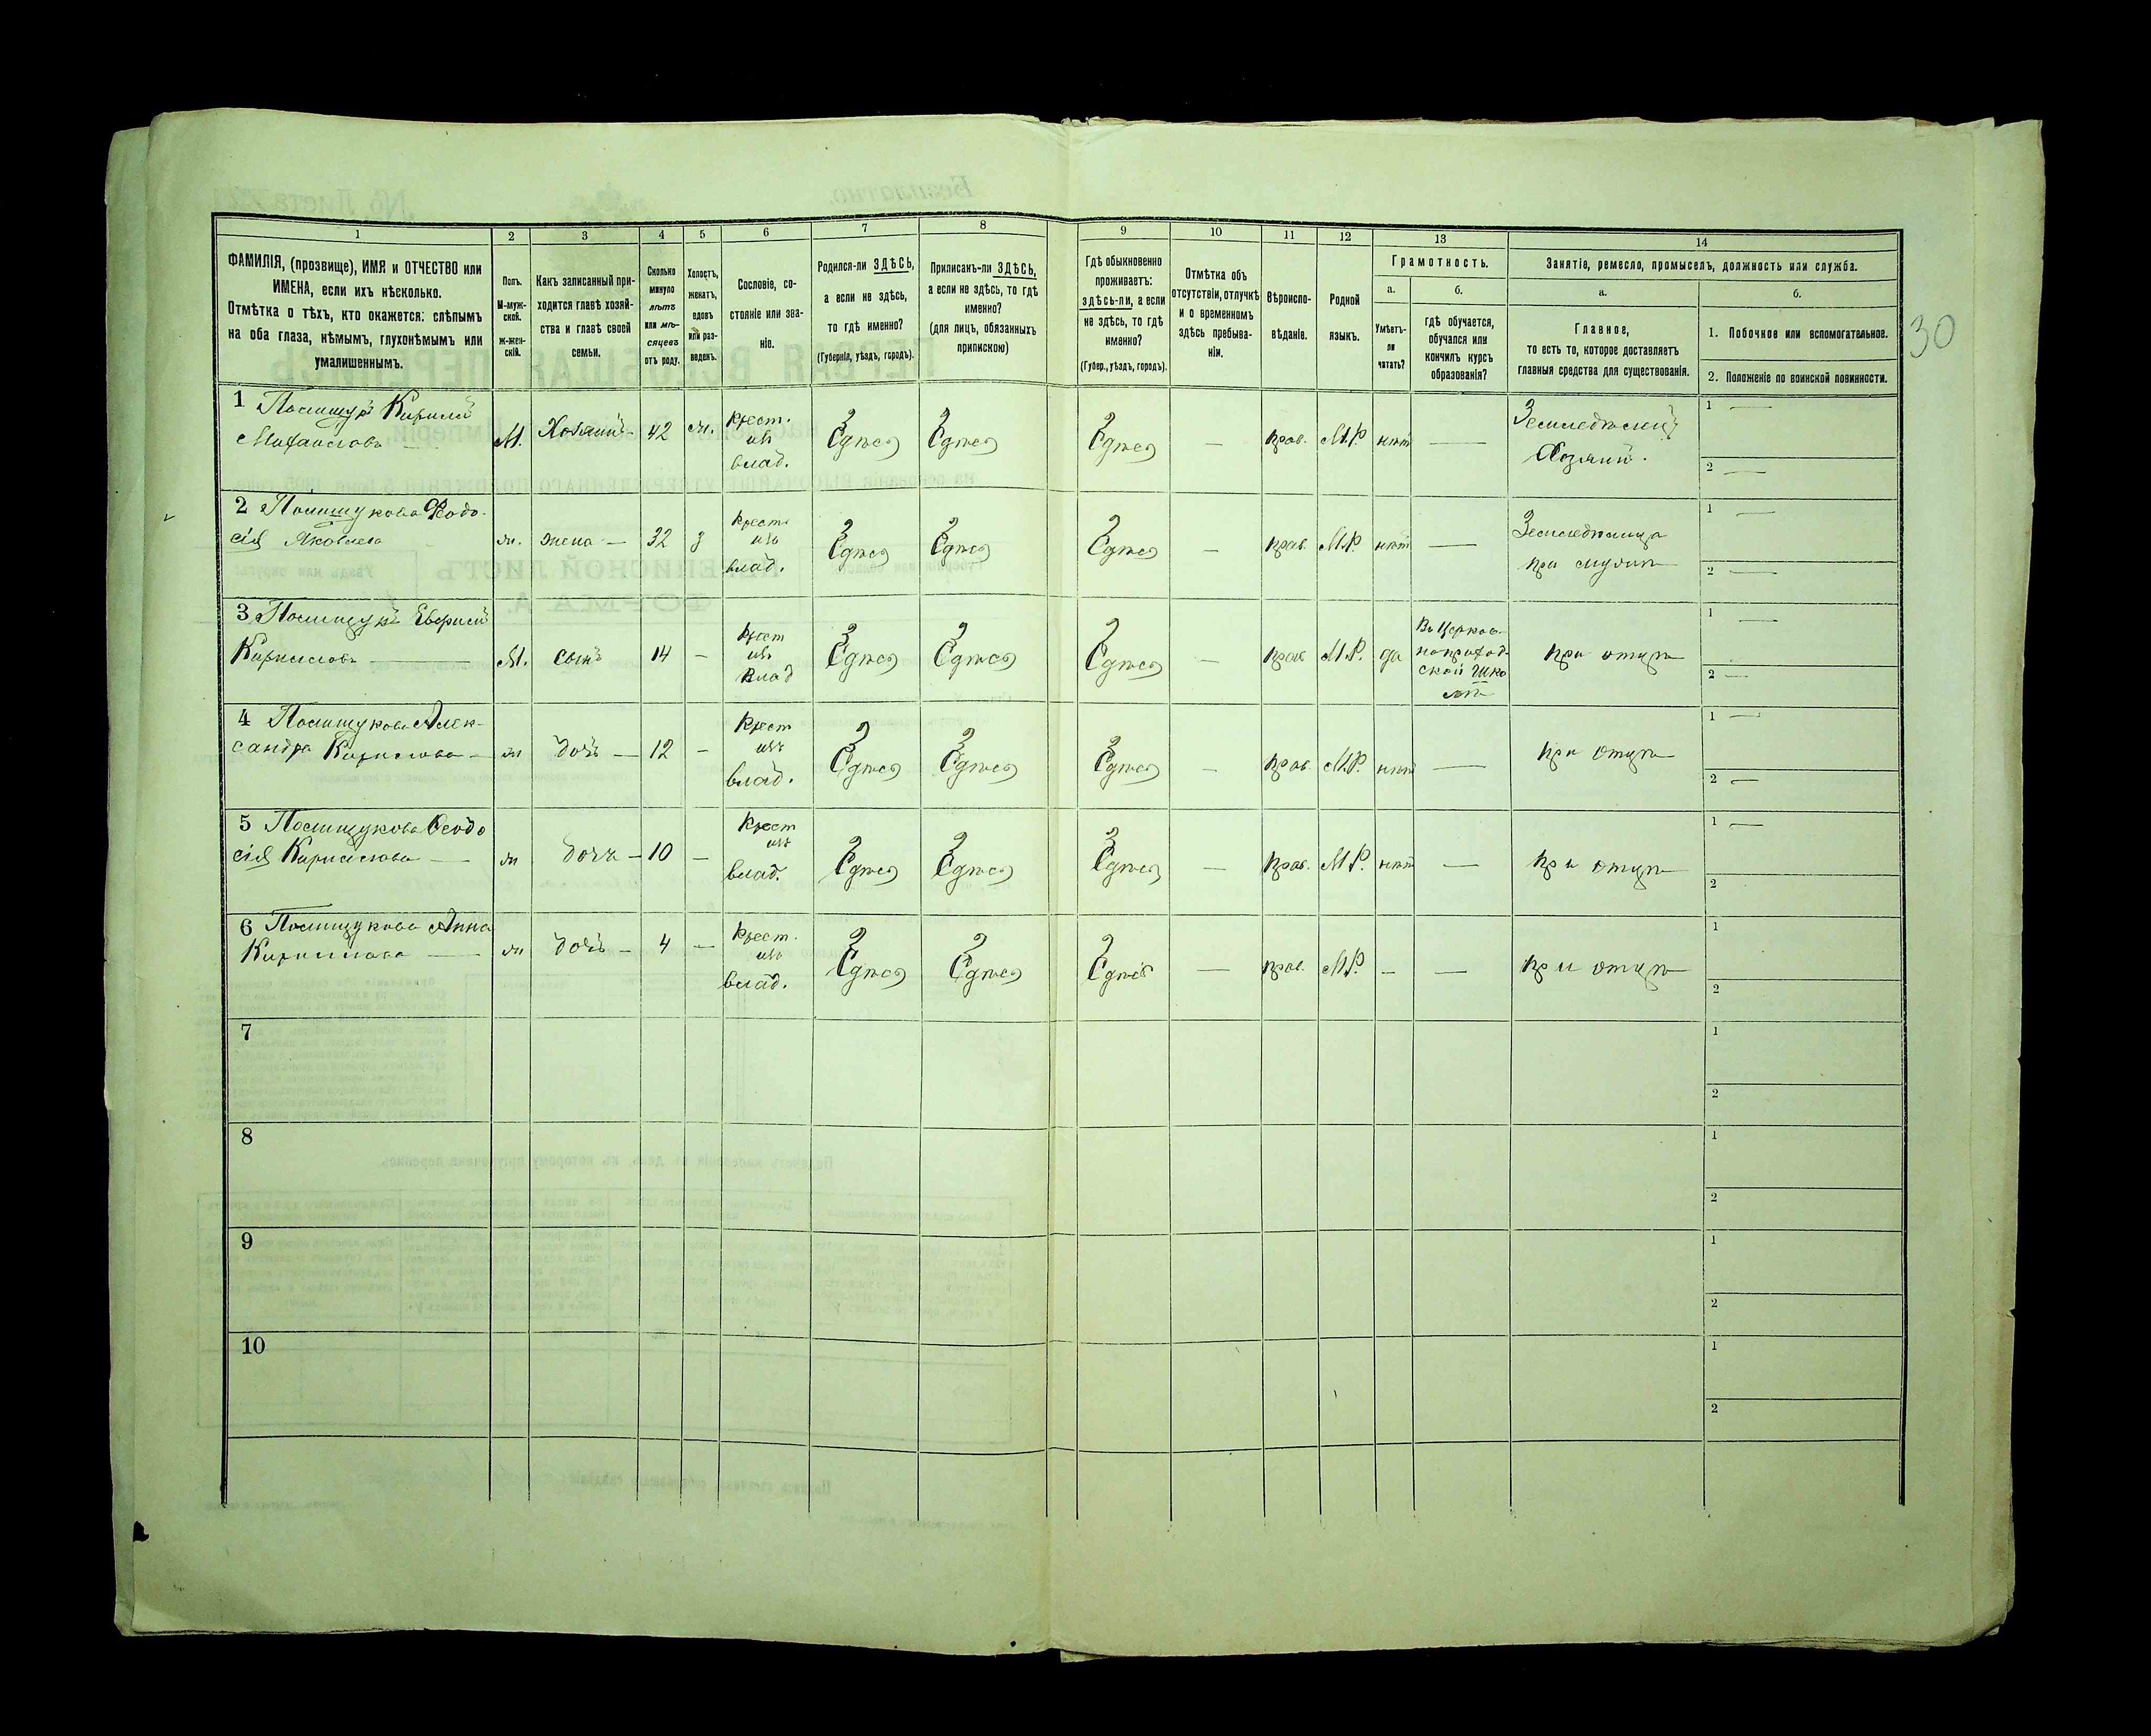 30
1 2 3 4 5 6 7 8 9 10 11 12 13 14
ФАМИЛІЯ, (прозвище), ИМЯ и ОТЧЕСТВО или
ИМЕНА, если ихъ нѣсколько.
Отмѣтка о тѣхъ, кто окажется: слѣпымъ
на оба глаза, нѣмымъ, глухонѣмымъ или
умалишеннымъ.
Полъ.
М-муж-
ской.
ж-жен-
скій.
Какъ записанный при-
ходится главѣ хозяй-
ства и главѣ своей
семьи.
Сколько
минуло
лѣтъ
или мѣ-
сяцевъ
отъ роду.
Холостъ,
женатъ,
вдовъ
или раз-
веденъ.
Сословіе, со-
стояніе или зва-
ніе.
Родился-ли ЗДѢСЬ,
а если не здѣсь,
то гдѣ именно?
(Губернія, уѣздъ, городъ).
Приписанъ-ли ЗДѢСЬ,
а если не здѣсь, то гдѣ
именно?
(для лицъ, обязанныхъ
припискою)
Гдѣ обыкновенно
проживаетъ:
здѣсь-ли, а если
не здѣсь, то гдѣ
именно?
(Губер., уѣздъ, городъ).
Отмѣтка объ
отсутствіи, отлучкѣ
и о временномъ
здѣсь пребыва-
ніи.
Вѣроиспо-
вѣданіе.
Родной
языкъ.
Грамотность.
а.
Умѣетъ-
ли
читать?
б.
гдѣ обучается,
обучался или
кончилъ курсъ
образованія?
Занятіе, ремесло, промыселъ, должность или служба.
а.
Главное,
то есть то, которое доставляетъ
главныя средства для существованія.
б.
1. Побочное или вспомогательное.
2. Положеніе по воинской повинности.
1 Полищукъ Кирилъ
Михайловъ —
М.
Хозяинъ
42
ж.
Крест.
изъ
влад.
Здѣсь
Здѣсь
Здѣсь
—
прав.
М.Р.
нѣт
—
Земледѣлецъ
Хозяинъ.
1 —
2 —
2 Полищукова Феодо-
сія Яковлева
ж.
жена —
32
з
Крест
изъ
влад.
Здѣсь
Здѣсь
Здѣсь
—
прав.
М.Р.
нѣт
—
Земледѣлица
при мужѣ
1 —
2 —
3 Полищукъ
Кириловъ —
М.
сынъ
14
—
Крест
изъ
влад
Здѣсь
Здѣсь
Здѣсь
—
прав
М.Р.
да
Въ церков-
ноприход-
ской шко
лѣ
при отцѣ
1 —
2 —
4 Полищукова Алек-
сандра Кирилова —
ж
дочь —
12
—
Крест
изъ
влад.
Здѣсь
Здѣсь
Здѣсь
—
прав.
М.Р.
нѣт
—
при отцѣ
1 —
2 —
5 Полищукова Феодо
сія Кирилова —
ж
дочь —
10
—
Крест
изъ
влад.
Здѣсь
Здѣсь
Здѣсь
—
прав.
М.Р.
нѣт
—
при отцѣ
1 —
2
6 Полищукова Анна
Кирилова —
ж
дочь —
4
—
Крест.
изъ
влад.
Здѣсь
Здѣсь
Здѣсь
—
прав.
М.Р.
—
—
при отцѣ
1
2
7
1
2
8
1
2
9
1
2
10
1
2